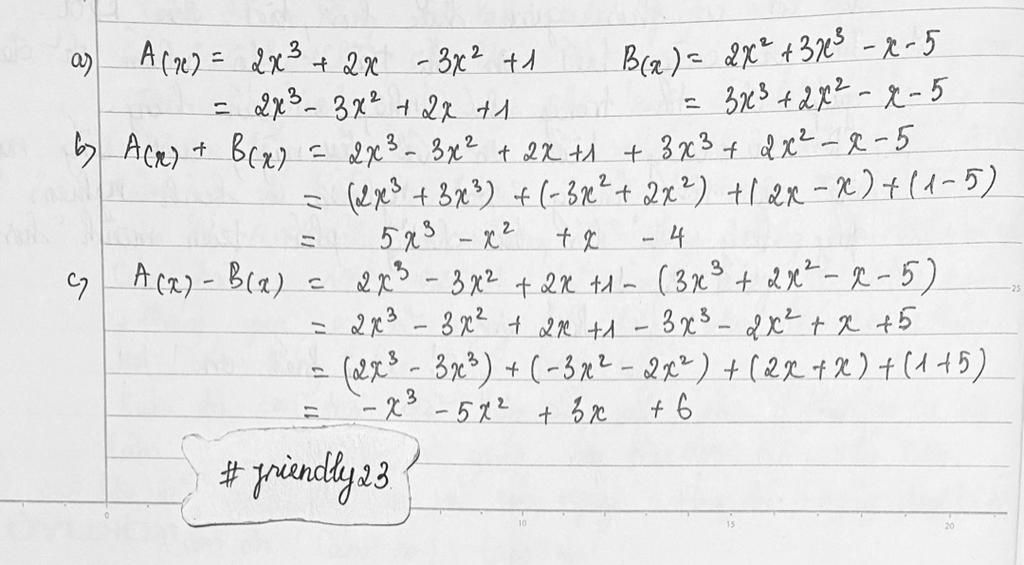 a) A(x) = 2x³ + 2x - 3x² + 1 B(x) = 2x² + 3x³ - x - 5
= 2x³ - 3x² + 2x + 1 = 3x³ + 2x² - x - 5
b) A(x) + B(x) = 2x³ - 3x² + 2x + 1 + 3x³ + 2x² - x - 5
= (2x³ + 3x³) + (-3x² + 2x²) + (2x - x) + (1 - 5)
= 5x³ - x² + x - 4
c) A(x) - B(x) = 2x³ - 3x² + 2x + 1 - (3x³ + 2x² - x - 5)
= 2x³ - 3x² + 2x + 1 - 3x³ - 2x² + x + 5
= (2x³ - 3x³) + (-3x² - 2x²) + (2x + x) + (1 + 5)
= -x³ - 5x² + 3x + 6
# friendly23
0 10 15 20
25